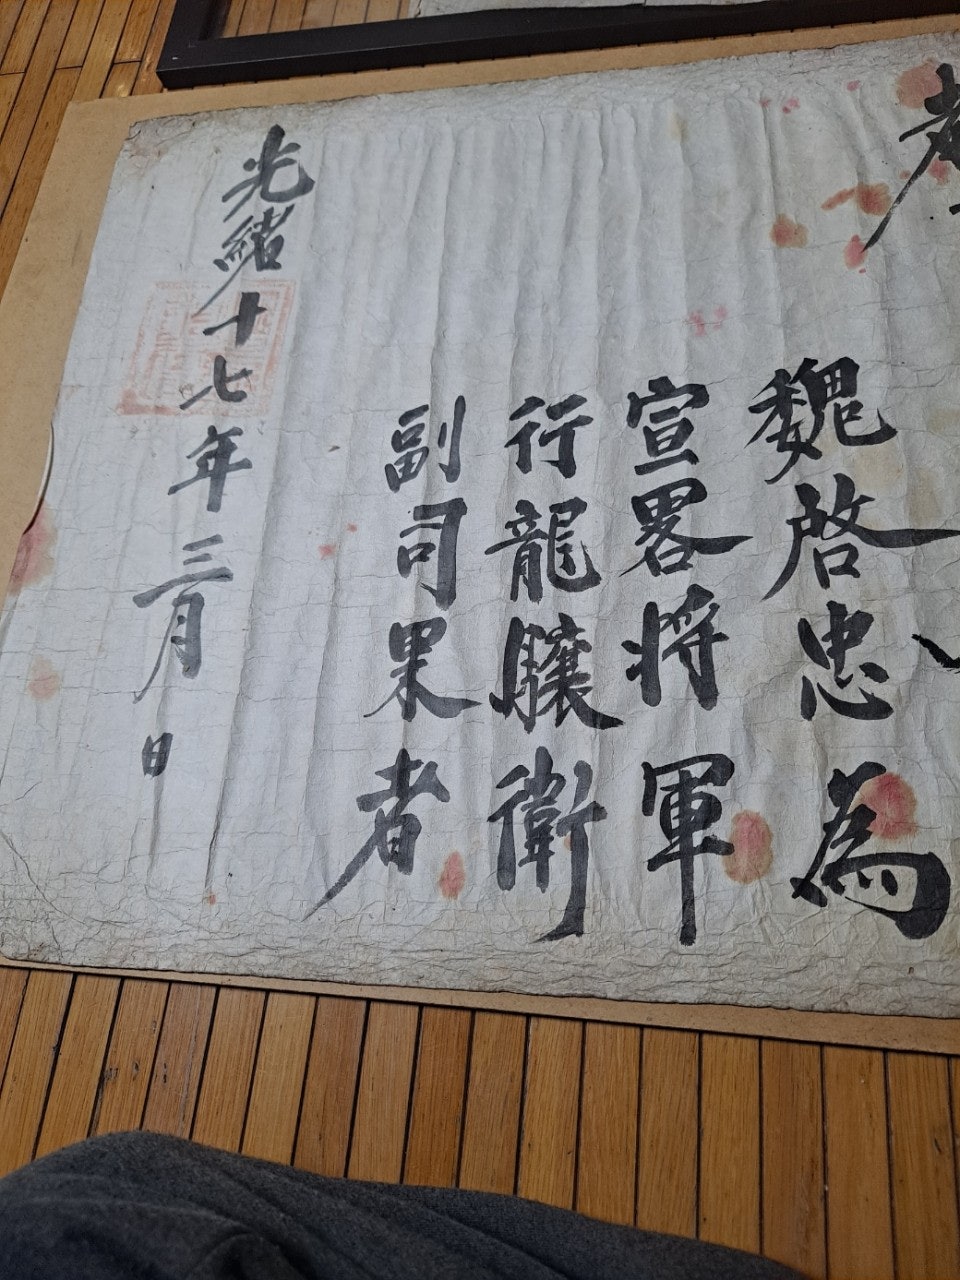 教
魏啓忠為
宣畧將軍
行龍驤衛
副司果者
光緒十七年三月日